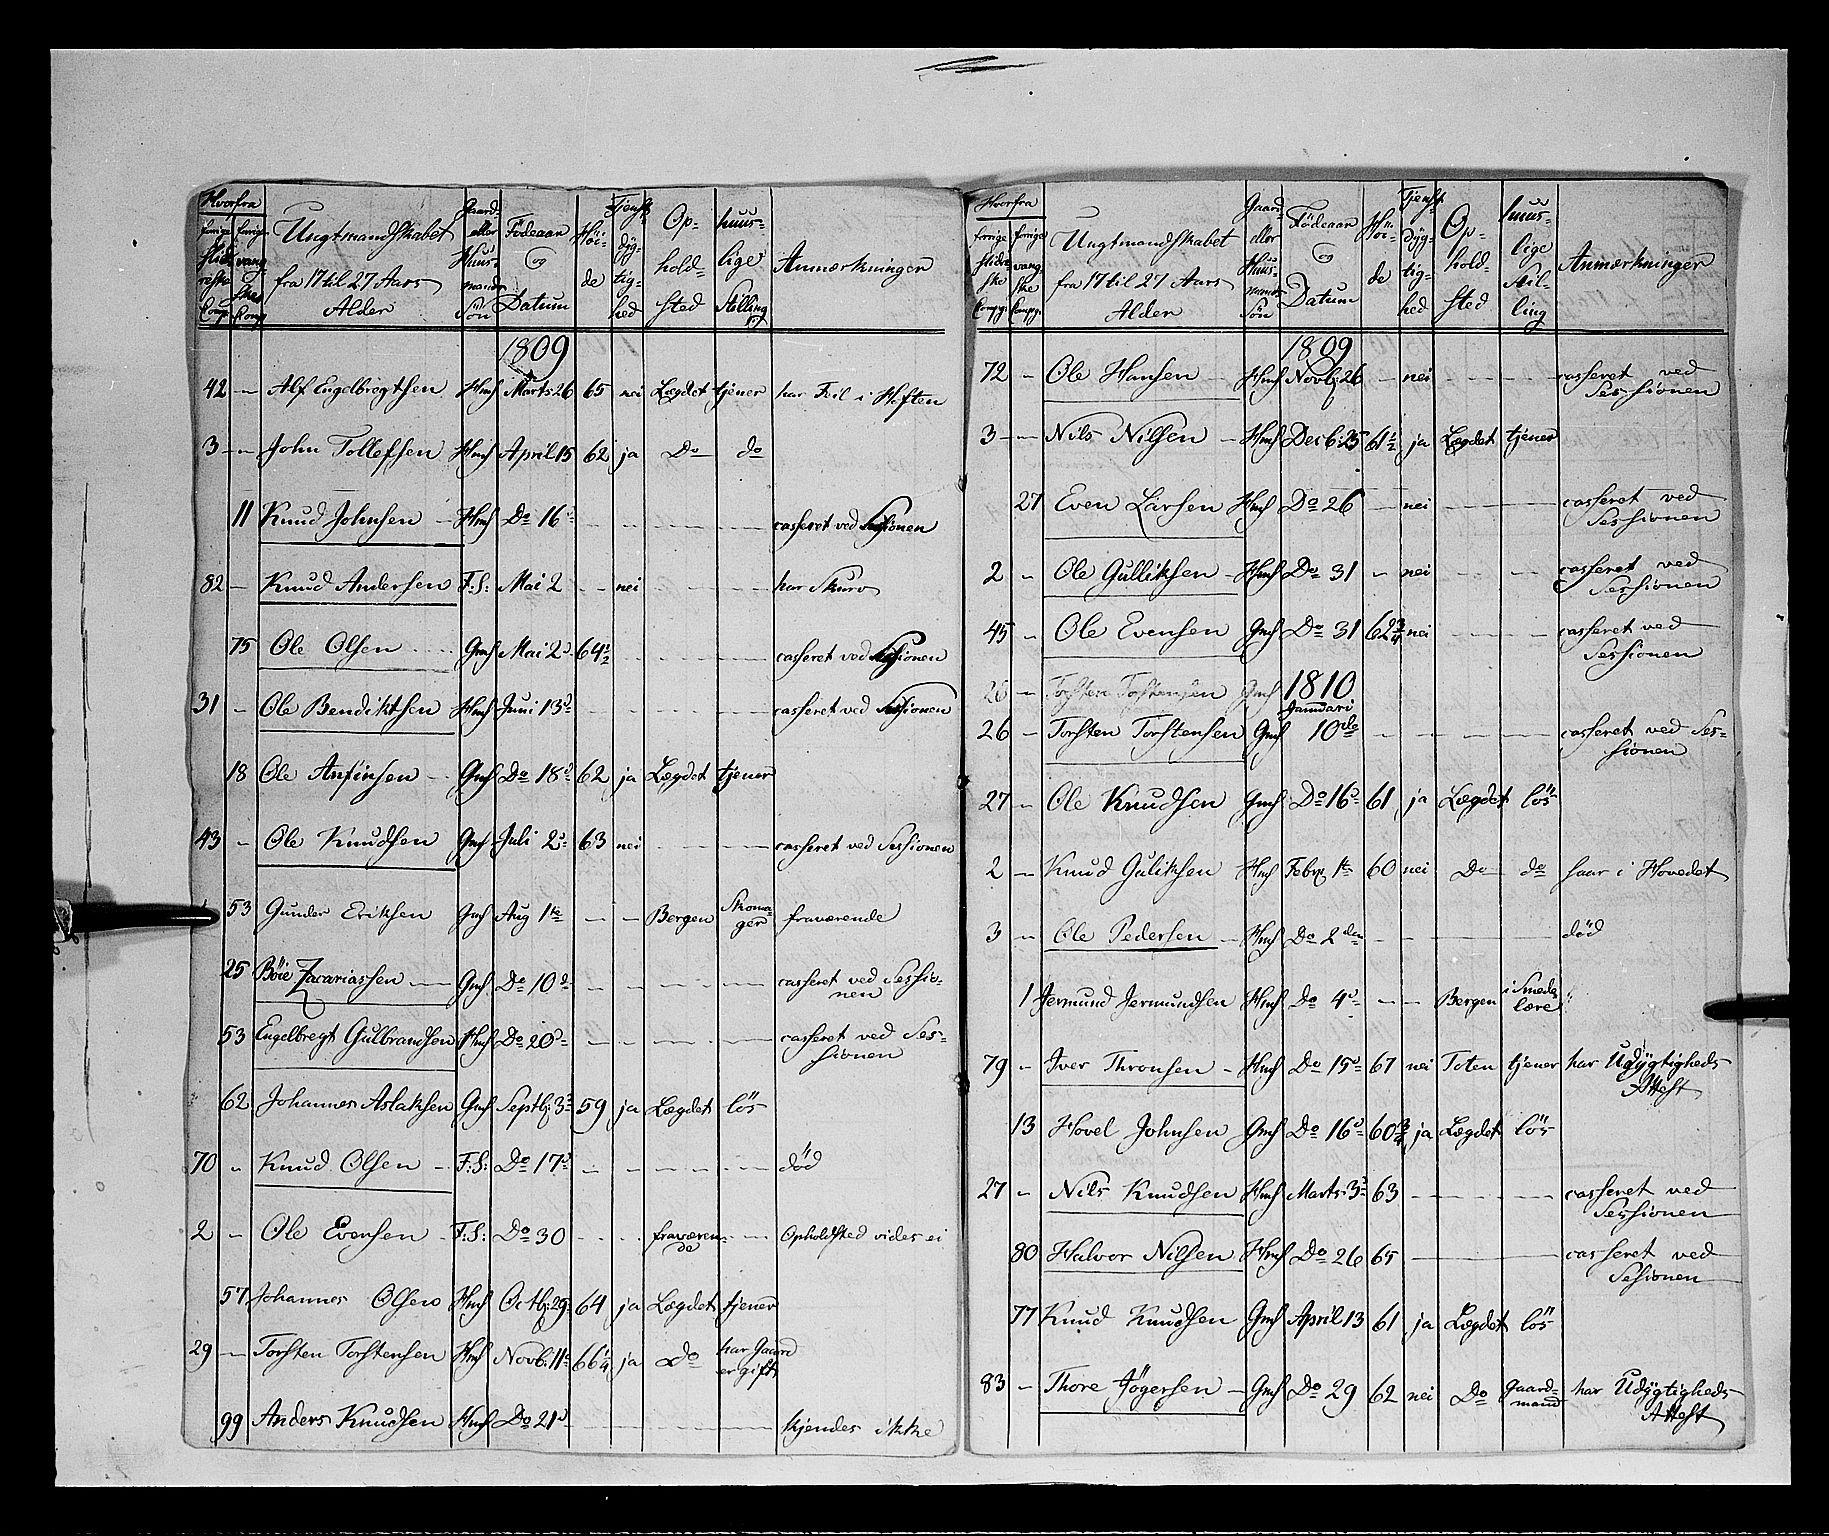 Hvorfra
Ungtmandskabet fra 17 til 27 Aars Alder
Gaard- eller Huusmands Søn
Födeaar og Datum
Höide
Tjenstdygtighed
Opholdsted
huuslige Stilling
Anmærkninger
1809
42 — Alf Engelbregtsen Hmf Marts 26 65 nei Lægdet tjener har Feil i Hoften
3 — John Tollefsen Hmf April 15 62 ja Do do
11 Knud Johnsen Hmf Do 16 casseret ved Sessionen
82 — Knud Andersen F:S: Mai 2 nei har Skurv
75 Ole Olsen Gmf Mai 2 64½ casseret ved Sessionen
31 — Ole Bendiktsen Hmf Juni 13 casseret ved Sessionen
18 Ole Anfinsen Gmf Do 18 62 ja Lægdet tjener
43 — Ole Knudsen Gmf Juli 2 63 nei casseret ved Sessionen
53 Gunder Eriksen Gmf Aug 1te Bergen Skomager fraværende
25 Böie Zacariassen Gmf Do 10 casseret ved Sessionen
53 Engelbregt Gulbrandsen Hmf Do 20 casseret ved Sessionen
62 Johannes Aslaksen Gmf Septb: 3 59 ja Lægdet lös
70 — Knud Olsen F:S: Do 17 död
2 — Ole Evensen F:S: Do 30 fraværende Opholdsted vides ei
57 Johannes Olsen Hmf Octb: 29 64 ja Lægdet tjener
29 — Torsten Torstensen Hmf Novb: 11 66¼ ja Do har Gaard er gift
99 Anders Knudsen Hmf Do 21 kjendes ikke
Hvorfra
Ungtmandskabet fra 17 til 27 Aars Alder
Gaard- eller Huusmands Søn
Födeaar og Datum
Höide
Tjenstdygtighed
Opholdsted
huuslige Stilling
Anmærkninger
1809
72 — Ole Hansen Hmf Novb: 26 — nei casseret ved Sessionen
3 — Nils Nilsen Hmf Decb: 25 61½ ja Lægdet tjener
27 Even Larsen Hmf Do 26 — nei casseret ved Sessionen
2 — Ole Gulliksen Hmf Do 31 — nei casseret ved Sessionen
45 — Ole Evensen Gmf Do 31 62¾ nei casseret ved Sessionen
26 — Torsten Torstensen Gmf 1810
Januari
26 — Torsten Torstensen Gmf 10de casseret ved Sessionen
27 — Ole Knudsen Gmf Do 16 61 ja Lægdet lös
2 — Knud Guliksen Hmf Febr. 1te 60 nei Do do saar i Hovedet
3 — Ole Pedersen Hmf Do 2den död
1 Jermund Jermundsen Hmf Do 4 Bergen i Smedelære
79 — Iver Thronsen Hmf Do 15 67 nei Toten tjener har Udygtigheds Attest
13 Hovel Johnsen Gmf Do 16 60¾ ja Lægdet lös
27 — Nils Knudsen Hmf Marts 3 63 casseret ved Sessionen
80 Halvor Nilsen Hmf Do 26 65 casseret ved Sesionen
77 Knud Knudsen Gmf April 13 61 ja Lægdet lös
83 — Thore Jögersen Gmf Do 29 62 nei Do Gaardmand har Udygtigheds Attest